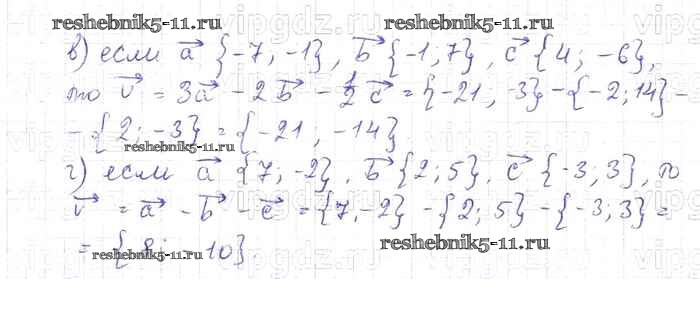 reshebnik5-11.ru
в) если a⃗ {-7; -1}, b⃗ {-1; 7}, c⃗ {4; -6},
то v⃗ = 3a⃗ - 2b⃗ - 1/2 c⃗ = {-21; -3} - {-2; 14} -
- {2; -3} = {-21; -14}
reshebnik5-11.ru
г) если a⃗ {7; -2}, b⃗ {2; 5}, c⃗ {-3; 3}, то
v⃗ = a⃗ - b⃗ - c⃗ = {7; -2} - {2; 5} - {-3; 3} =
= {8; -10}
reshebnik5-11.ru
reshebnik5-11.ru